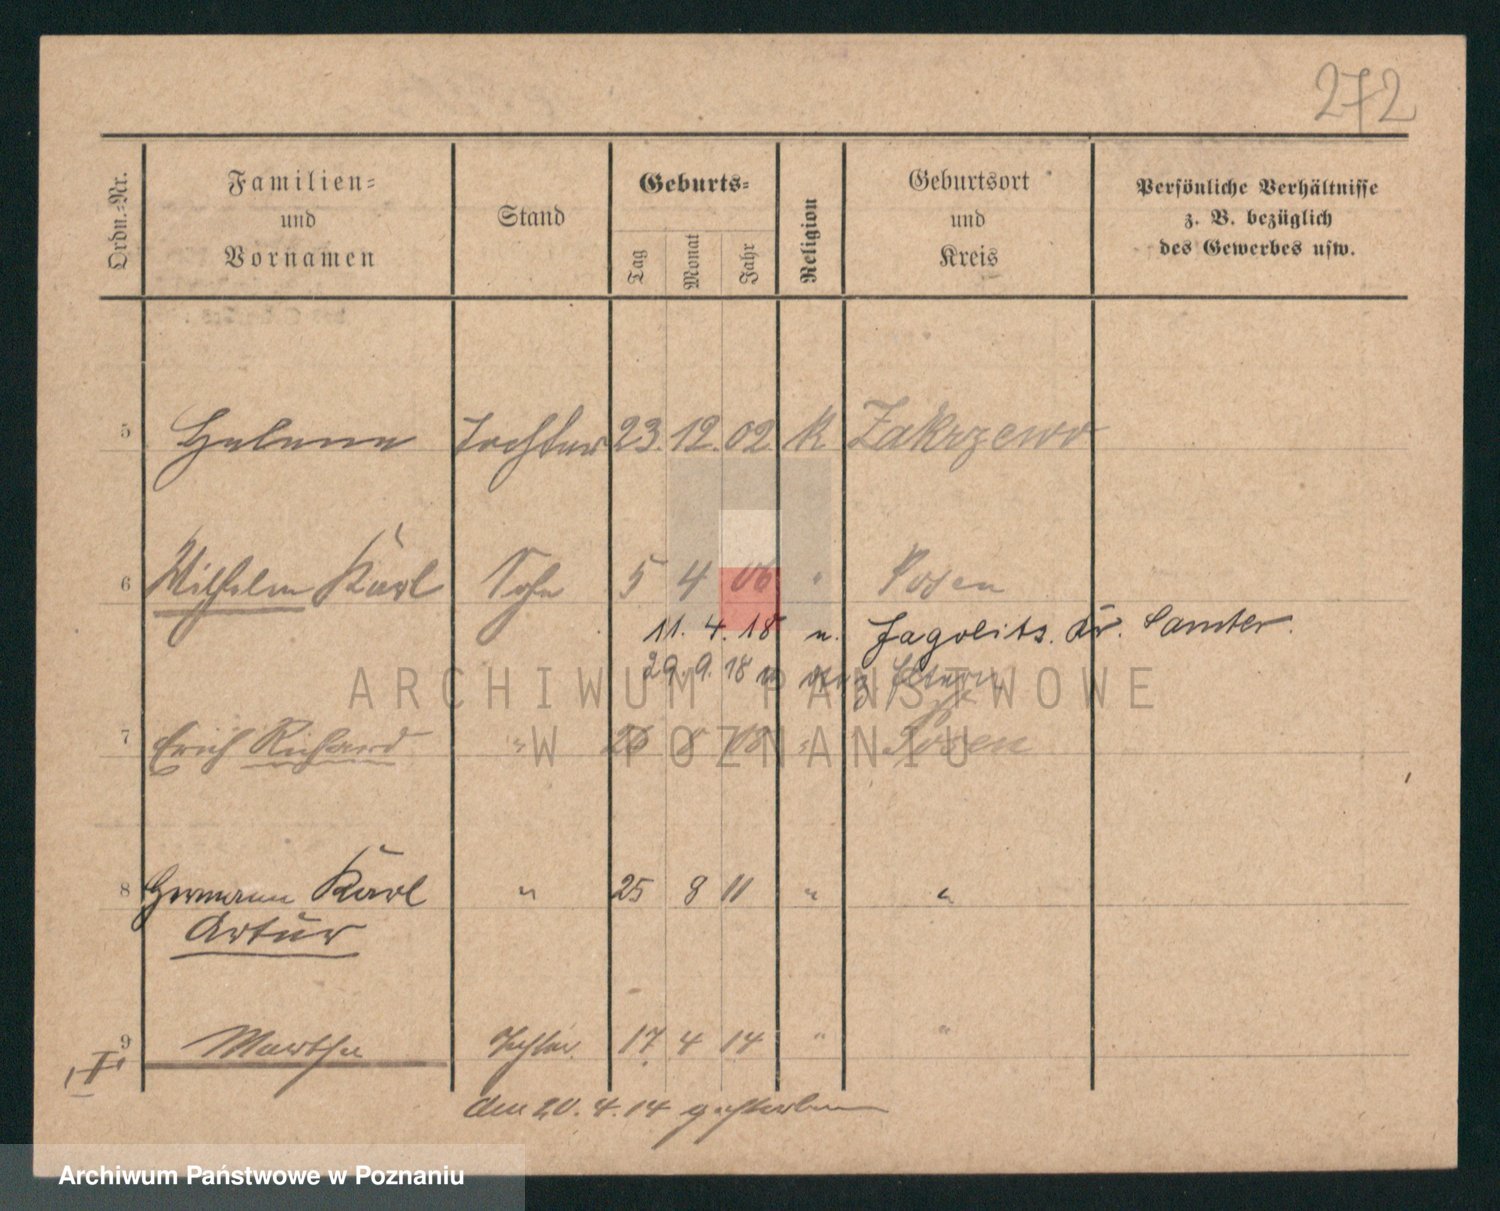 272
Ordn.-Nr.
Familien-
und
Vornamen
Stand
Geburts-
Tag
Monat
Jahr
Religion
Geburtsort
und
Kreis
Persönliche Verhältnisse
z. B. bezüglich
des Gewerbes usw.
5 Helene Tochter 23. 12. 02 K Zakrzewo
6 Wilhelm Karl Sohn 5 4 06 " Posen
11. 4. 18 n. Jagolits. Kr. Samter.
29. 9. 18 Eltern
7 Erich Richard " 26 8 " Posen
8 Hermann Karl " 25 8 11 " "
Artur
9 Martha Tochter 17. 4 14 " "
den 20. 4. 14 gestorben
ARCHIWUM PAŃSTWOWE
W POZNANIU
Archiwum Państwowe w Poznaniu